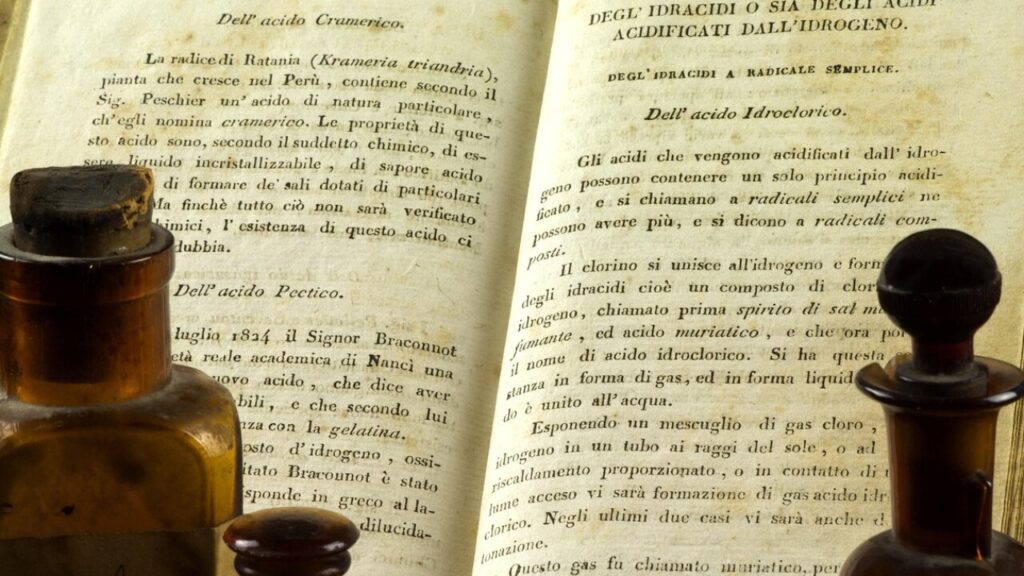 Dell' acido Cramerico.
La radice di Ratania (Krameria triandria),
pianta che cresce nel Perù, contiene secondo il
Sig. Peschier un' acido di natura particolare,
ch'egli nomina cramerico. Le proprietà di que-
sto acido sono, secondo il suddetto chimico, di es-
sere liquido incristallizzabile, di sapore acido
di formare de' sali dotati di particolari
Ma finchè tutto ciò non sarà verificato
l' esistenza di questo acido ci
dubbia.
Dell' acido Pectico.
luglio 1824 il Signor Braconnot
reale academica di Nancì una
acido, che dice aver
e che secondo lui
con la gelatina.
d'idrogeno, ossi-
Braconnot è stato
in greco al la-
dilucida-
DEGL' IDRACIDI O SIA DEGLI ACIDI
ACIDIFICATI DALL'IDROGENO.
DEGL' IDRACIDI A RADICALE SEMPLICE.
Dell' acido Idroclorico.
Gli acidi che vengono acidificati dall' idro-
geno possono contenere un solo principio acidi-
ficato, e si chiamano a radicali semplici ne
possono avere più, e si dicono a radicali com-
posti.
Il clorino si unisce all'idrogeno e
degli idracidi cioè un composto di
idrogeno, chiamato prima spirito di sal
fumante, ed acido muriatico, e che ora
il nome di acido idroclorico. Si ha questa
stanza in forma di gas, ed in forma
do è unito all' acqua.
Esponendo un mescuglio di gas cloro,
idrogeno in un tubo ai raggi del sole, o ad
riscaldamento proporzionato, o in contatto di
lume acceso vi sarà formazione di gas acido
clorico. Negli ultimi due casi vi sarà anche
tonazione.
Questo gas fu chiamato muriatico,